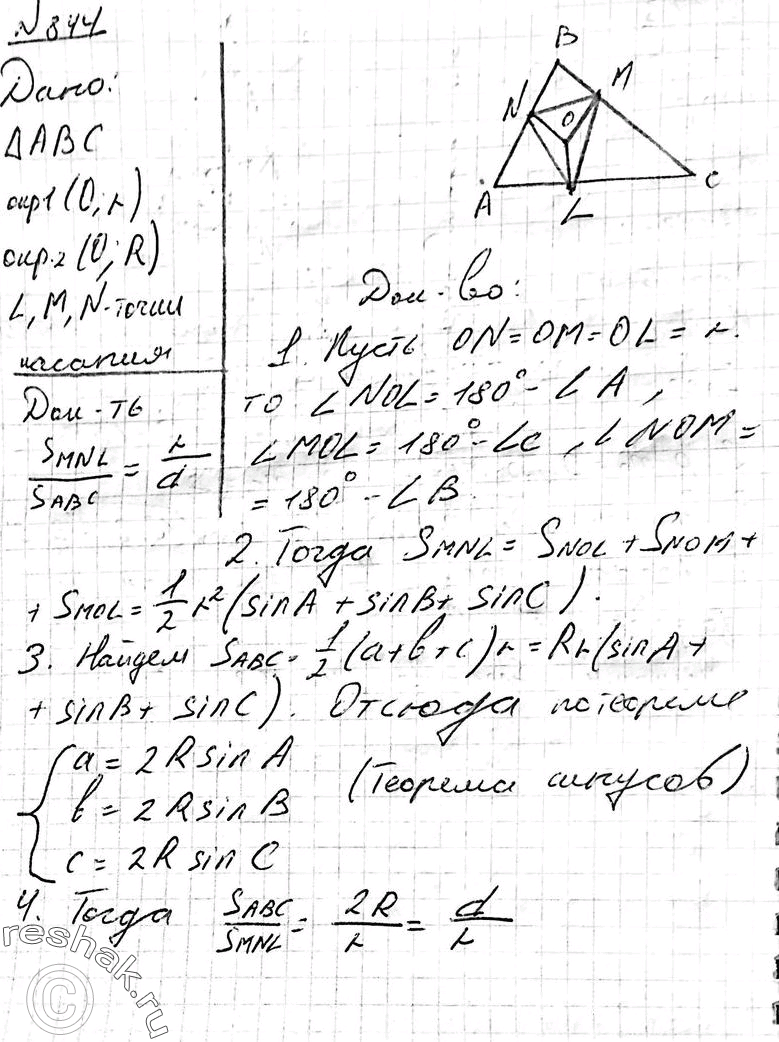 № 844
Дано:
ΔABC
окр1 (O; r)
окр.2 (O; R)
L, M, N-точки
касания
Док-ть
SMNL/SABC = r/d
B
M
N
O
A
L
C
Док-во:
1. Пусть ON = OM = OL = r.
то ∠NOL = 180° - ∠A,
∠MOL = 180° - ∠C, ∠NOM =
= 180° - ∠B.
2. Тогда SMNL = SNOL + SNOM +
+ SMOL = 1/2 r² (sinA + sinB + sinC).
3. Найдем SABC = 1/2 (a + b + c) r = Rr(sinA +
+ sinB + sinC). Отсюда по теореме
a = 2R sin A
b = 2R sin B
(Теорема синусов)
c = 2R sin C
4. Тогда SABC/SMNL = 2R/r = d/r
reshak.ru
©